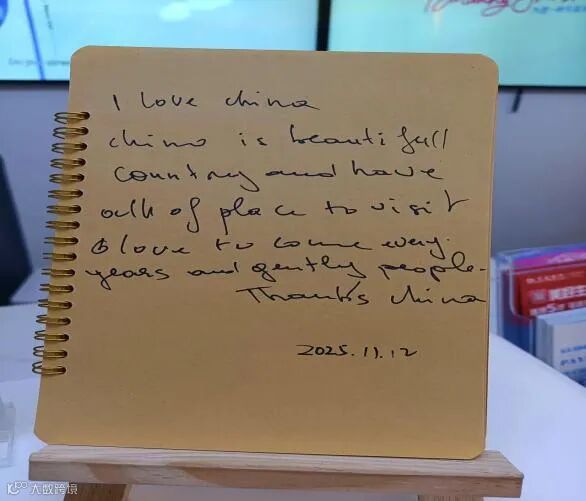 I love china
china is beautifull
country and have
of place to visit
love to come every
years and gently people.
Thanks china
2025.11.12
大数跨境